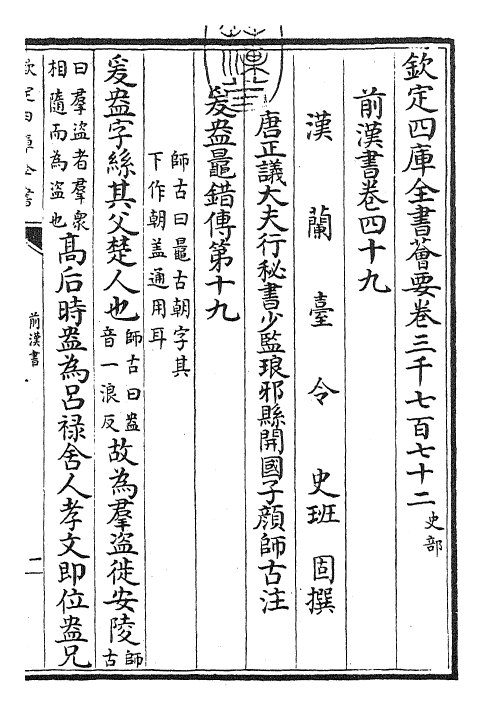 欽定四庫全書薈要卷三千七百七十二 史部
前漢書卷四十九
漢蘭臺令史班固撰
唐正議大夫行秘書少監琅邪縣開國子顔師古注
爰盎鼂錯傳第十九
師古曰鼂古朝字其
下作朝盖通用耳
爰盎字絲其父楚人也
師古曰盎
音一浪反
故為羣盜徙安陵
師
古
曰羣盜者羣衆
相隨而為盜也
高后時盎為呂禄舍人孝文即位盎兄
欽定四庫全書
前漢書